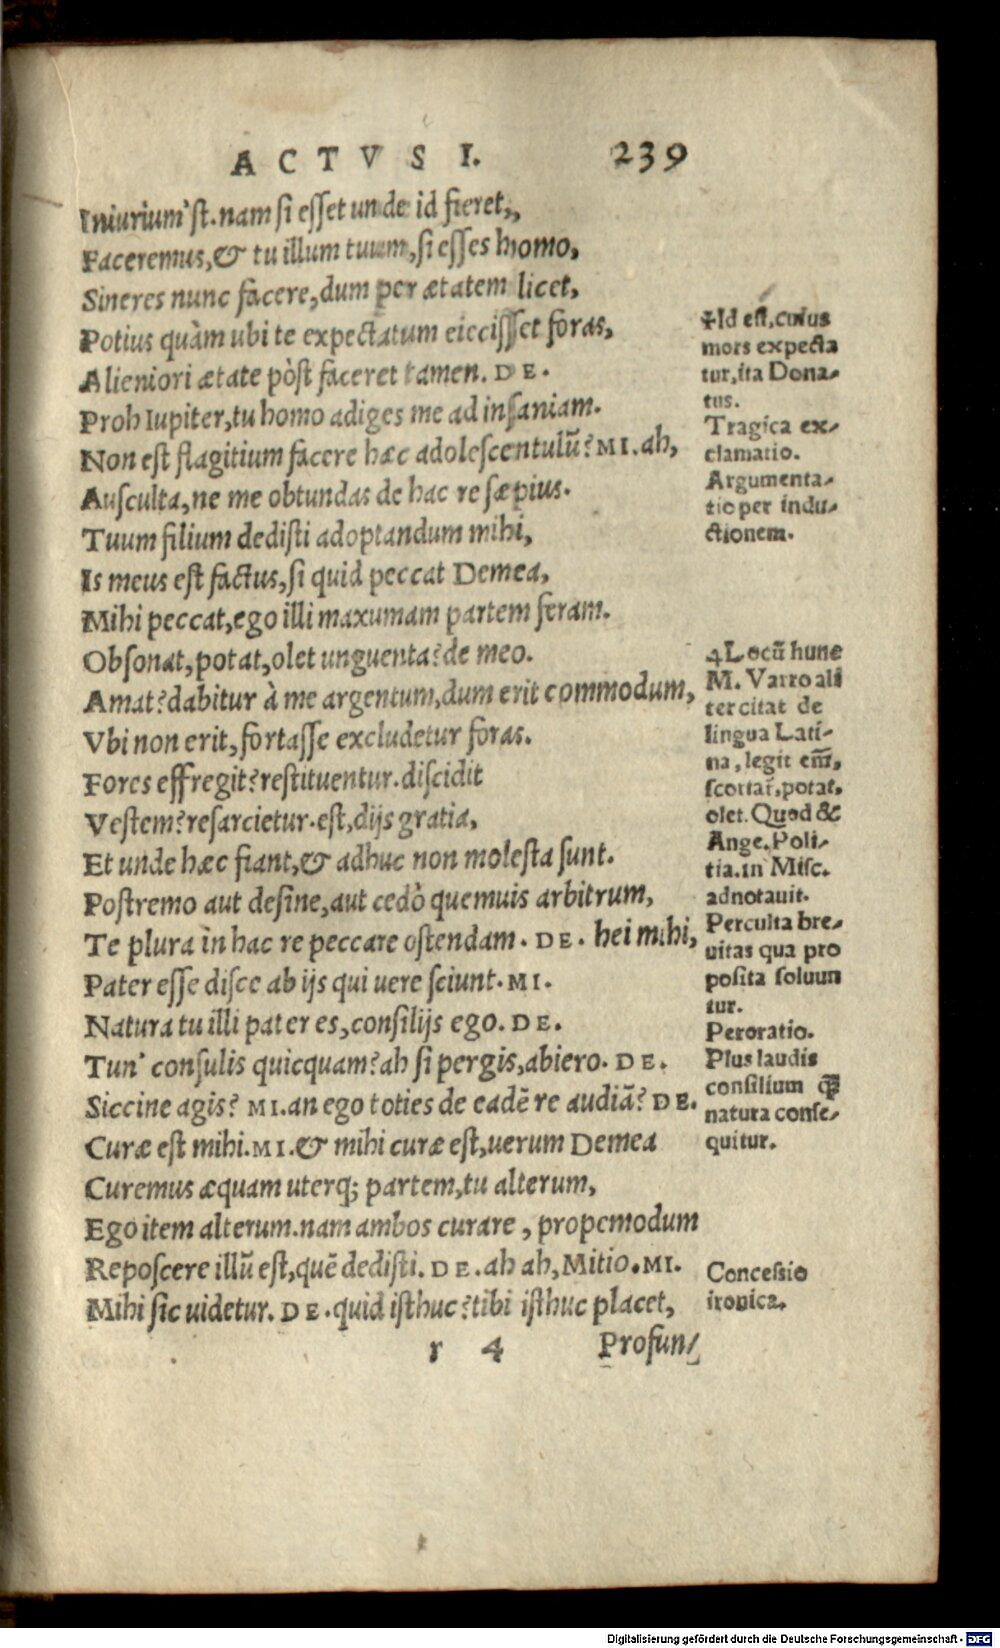 ACTVS I. 239
Iniurium'st. nam si esset unde id fieret,
Faceremus, & tu illum tuum, si esses homo,
Sineres nunc facere, dum per ætatem licet,
Potius quàm ubi te expectatum eiecisset foras,
Alieniori ætate pòst faceret tamen. DE.
Proh Iupiter, tu homo adiges me ad insaniam.
Non est flagitium facere hæc adolescentulū? MI. ah,
Ausculta, ne me obtundas de hac re sæpius.
Tuum filium dedisti adoptandum mihi,
Is meus est factus, si quid peccat Demea,
Mihi peccat, ego illi maxumam partem feram.
Obsonat, potat, olet unguenta? de meo.
Amat? dabitur à me argentum, dum erit commodum,
Vbi non erit, fortasse excludetur foras.
Fores effregit? restituentur. discidit
Vestem? resarcietur. est, dijs gratia,
Et unde hæc fiant, & adhuc non molesta sunt.
Postremo aut desine, aut cedò quemuis arbitrum,
Te plura in hac re peccare ostendam. DE. hei mihi,
Pater esse disce ab ijs qui uere sciunt. MI.
Natura tu illi pater es, consilijs ego. DE.
Tun' consulis quicquam? ah si pergis, abiero. DE.
Siccine agis? MI. an ego toties de eadē re audiā? DE.
Curæ est mihi. MI. & mihi curæ est, uerum Demea
Curemus æquam uterq; partem, tu alterum,
Ego item alterum. nam ambos curare, propemodum
Reposcere illū est, quē dedisti. DE. ah ah, Mitio. MI.
Mihi sic uidetur. DE. quid isthuc? tibi isthuc placet,
r 4 Profun/
Id est, cuius
mors expecta
tur, ita Dona-
tus.
Tragica ex-
clamatio.
Argumenta-
tio per indu-
ctionem.
4 Locū hunc
M. Varro ali
ter citat de
lingua Lati-
na, legit em̄,
scortat̄, potat,
olet. Quod &
Ange. Poli-
tia. in Misc.
adnotauit.
Perculta bre-
uitas qua pro
posita soluun
tur.
Peroratio.
Plus laudis
consilium q̄
natura conse-
quitur.
Concessio
ironica.
Digitalisierung gefördert durch die Deutsche Forschungsgemeinschaft - DFG